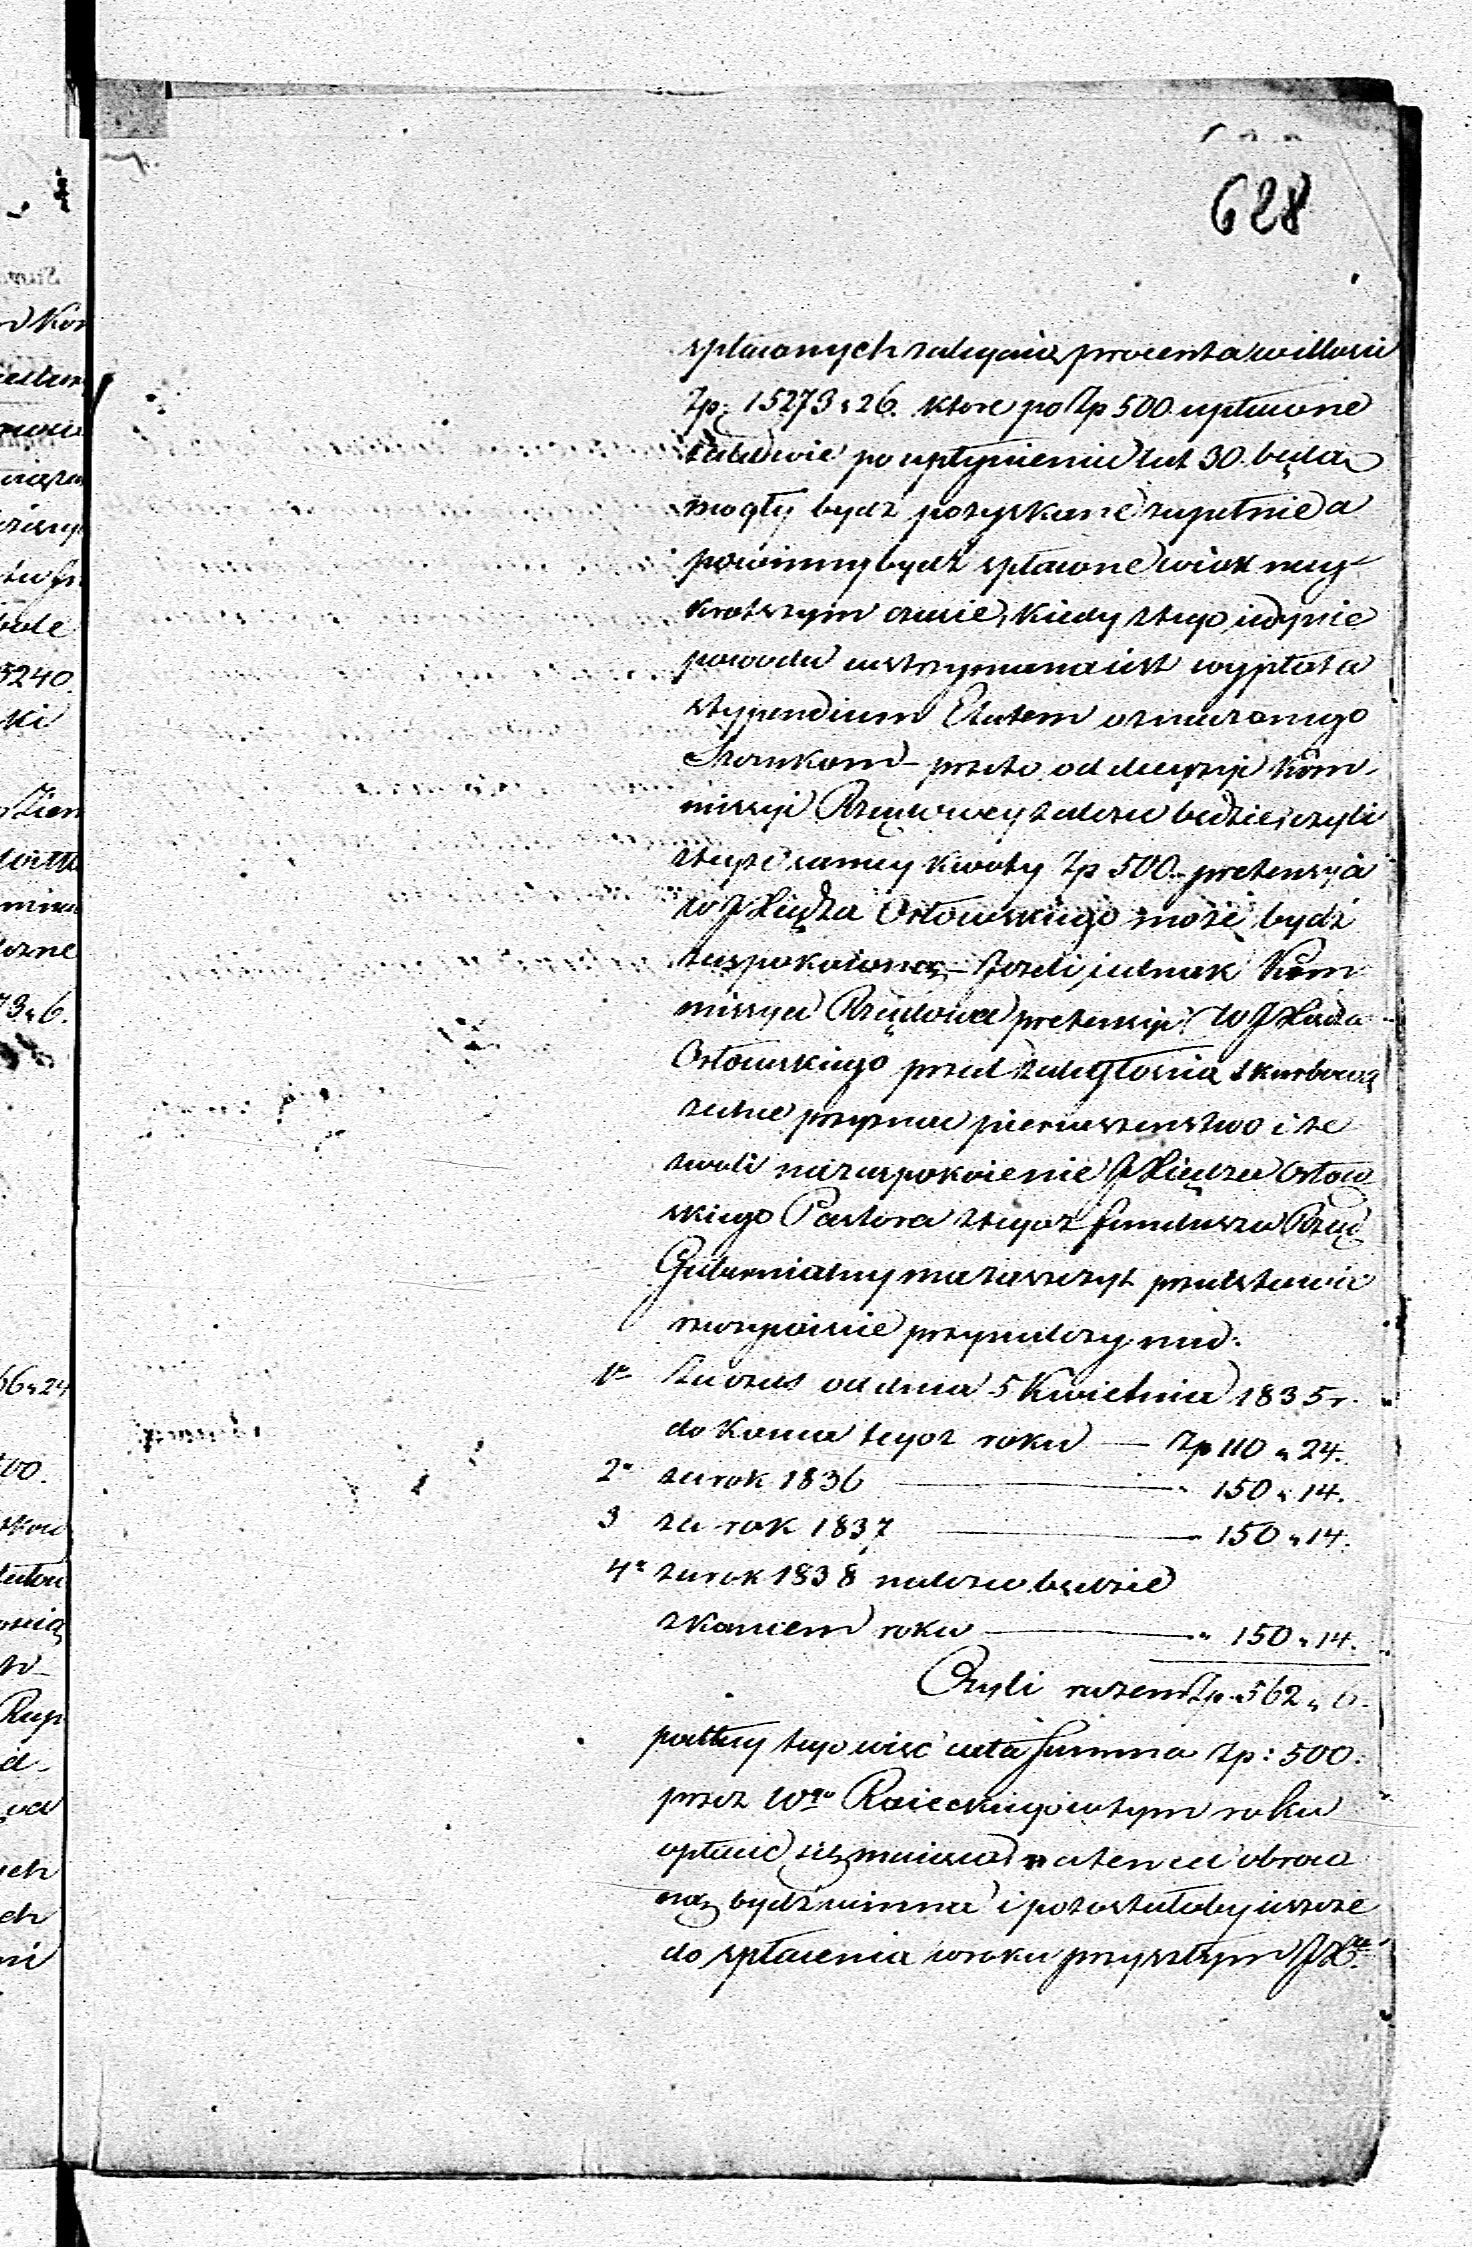 628
spłaconych zalegaią procenta w illości
Zp: 15273 „ 26. ktore po Zp 500 upłacone
zaledwie po upłynieniu lat 30. będą
mogły bydz pozyskane zupełnie a
powinny bydź spłacone w iak nay-
krotszym czasie, kiedy z tego iedynie
powodu wstrzymana iest wypłata
stypendium Etatem oznaczonego
przeto od decyzyi Kom-
missyi Rządowey zależeć będzie, czyli
z teyże samey kwoty Zp 500 – pretensya
W J Xiędza Orłowskiego może bydź
zaspokoiona, – Jeżeli iednak Kom
missya Rządowa pretensyi W J Xiędza
Orłowskiego przed zaległością skarbową
zechce przyznać pierwszeństwo i ze
zwoli na zaspokoienie J Xiędza Orłow
skiego Pastora z tegoż funduszu Rząd
Gubernialny ma zaszczyt przedstawić
rzeczywiście przynależy mu:
1º Za czas od dnia 5 Kwietnia 1835 r.
do konca tegoż roku — Zp 110 „ 24.
2º za rok 1836 — „ 150 „ 14.
3 za rok 1837 — 150 „ 14.
4º za rok 1838 należeć będzie
z koncem roku — „ 150 „ 14.
Czyli razem Zp. 562 „ 6.
podług tego więc cała Summa Zp: 500.
przez Wgo Raieckiego w tym roku
opłacić się maiąca na ten cel obroco
ną bydź winna i pozostałoby ieszcze
do spłacenia w roku przyszłym J X